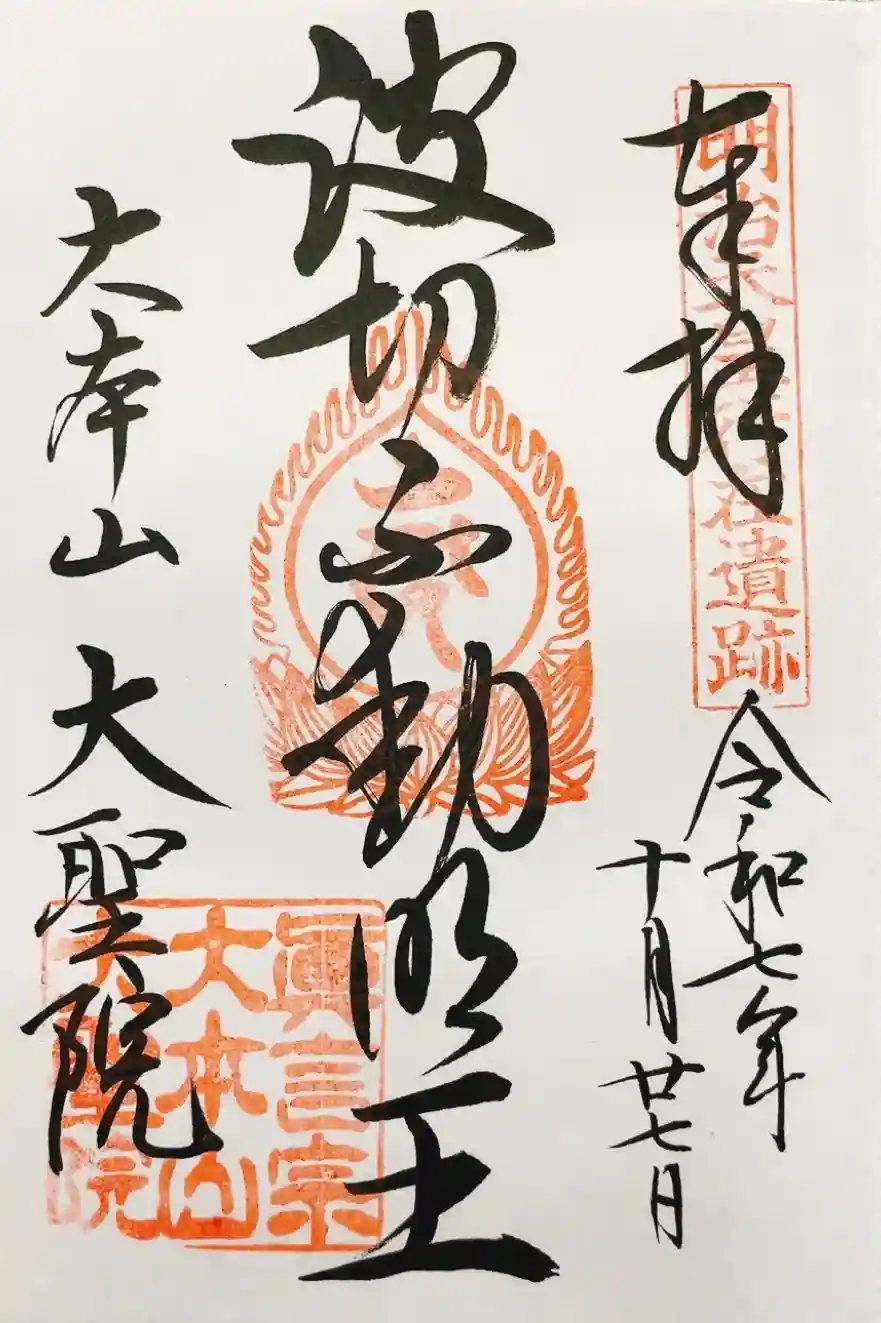 奉拝
明治天皇行在遺跡
令和七年
十月廿七日
波切不動明王
大本山 大聖院
眞言宗
大本山
大聖院